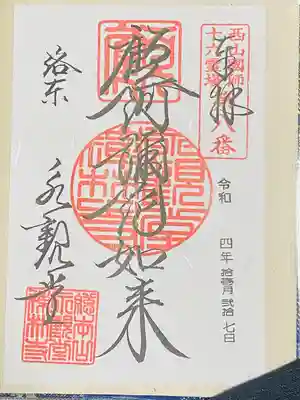 奉拝
西山國師
十六霊場
第八番
顧阿彌陀如来
令和 四年 拾壹月 貳拾七日
洛东
永觀堂